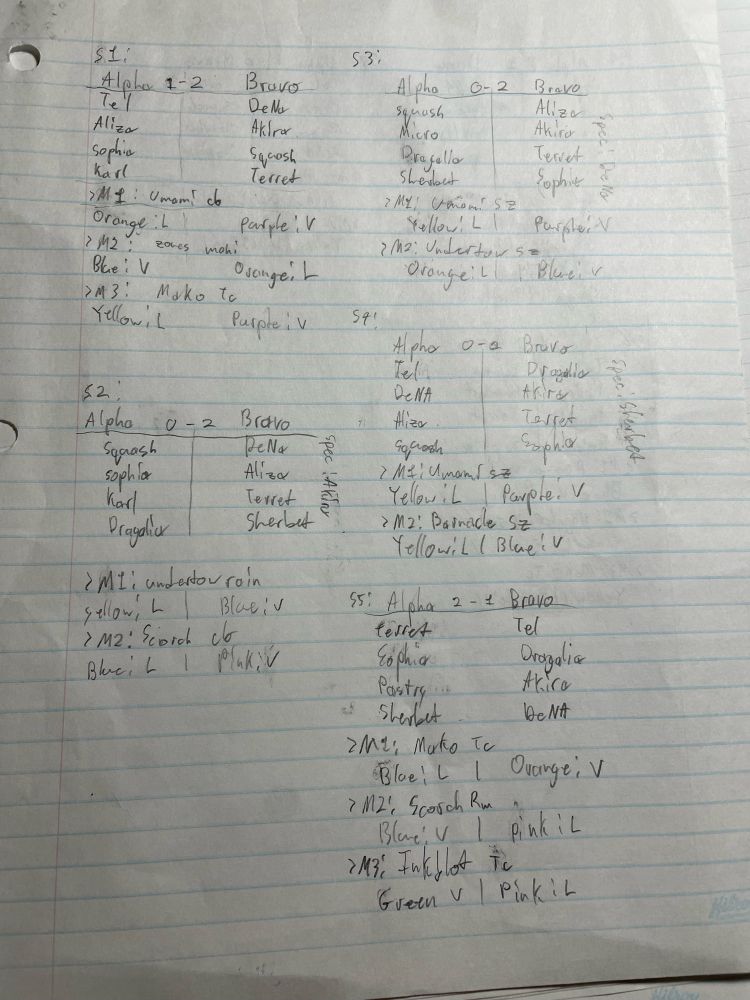 S1:
Alpha 1-2 Bravo
Tel DeNa
Aliza Akira
Sophia Squash
Karl Terret
>M1: Umami cb
Orange: L Purple: V
>M2: zones mahi
Blue: V Orange: L
>M3: Mako Tc
Yellow: L Purple: V
S2:
Alpha 0-2 Bravo
Squash DeNa
Sophia Aliza
Karl Terret
Dragalia Sherbet
Spec: Akira
>M1: undertow rain
yellow: L | Blue: V
>M2: Scorch cb
Blue: L | Pink: V
S3:
Alpha 0-2 Bravo
Squash Aliza
Micro Akira
Dragalia Terret
Sherbet Sophia
Spec: DeNa
>M1: Umami sz
Yellow: L | Purple: V
>M2: Undertow sz
Orange: L | Blue: V
S4:
Alpha 0-2 Bravo
Tel Dragalia
DeNA Akira
Aliza Terret
Squash Sophia
Spec: Sherbet
>M1: Umami sz
Yellow: L | Purple: V
>M2: Barnacle sz
Yellow: L | Blue: V
S5: Alpha 2-1 Bravo
terret Tel
Sophia Dragalia
Pastry Akira
Sherbet DeNA
>M1: Mako Tc
Blue: L | Orange: V
>M2: Scorch Rm
Blue: V | Pink: L
>M3: Inkblot Tc
Green V | Pink: L